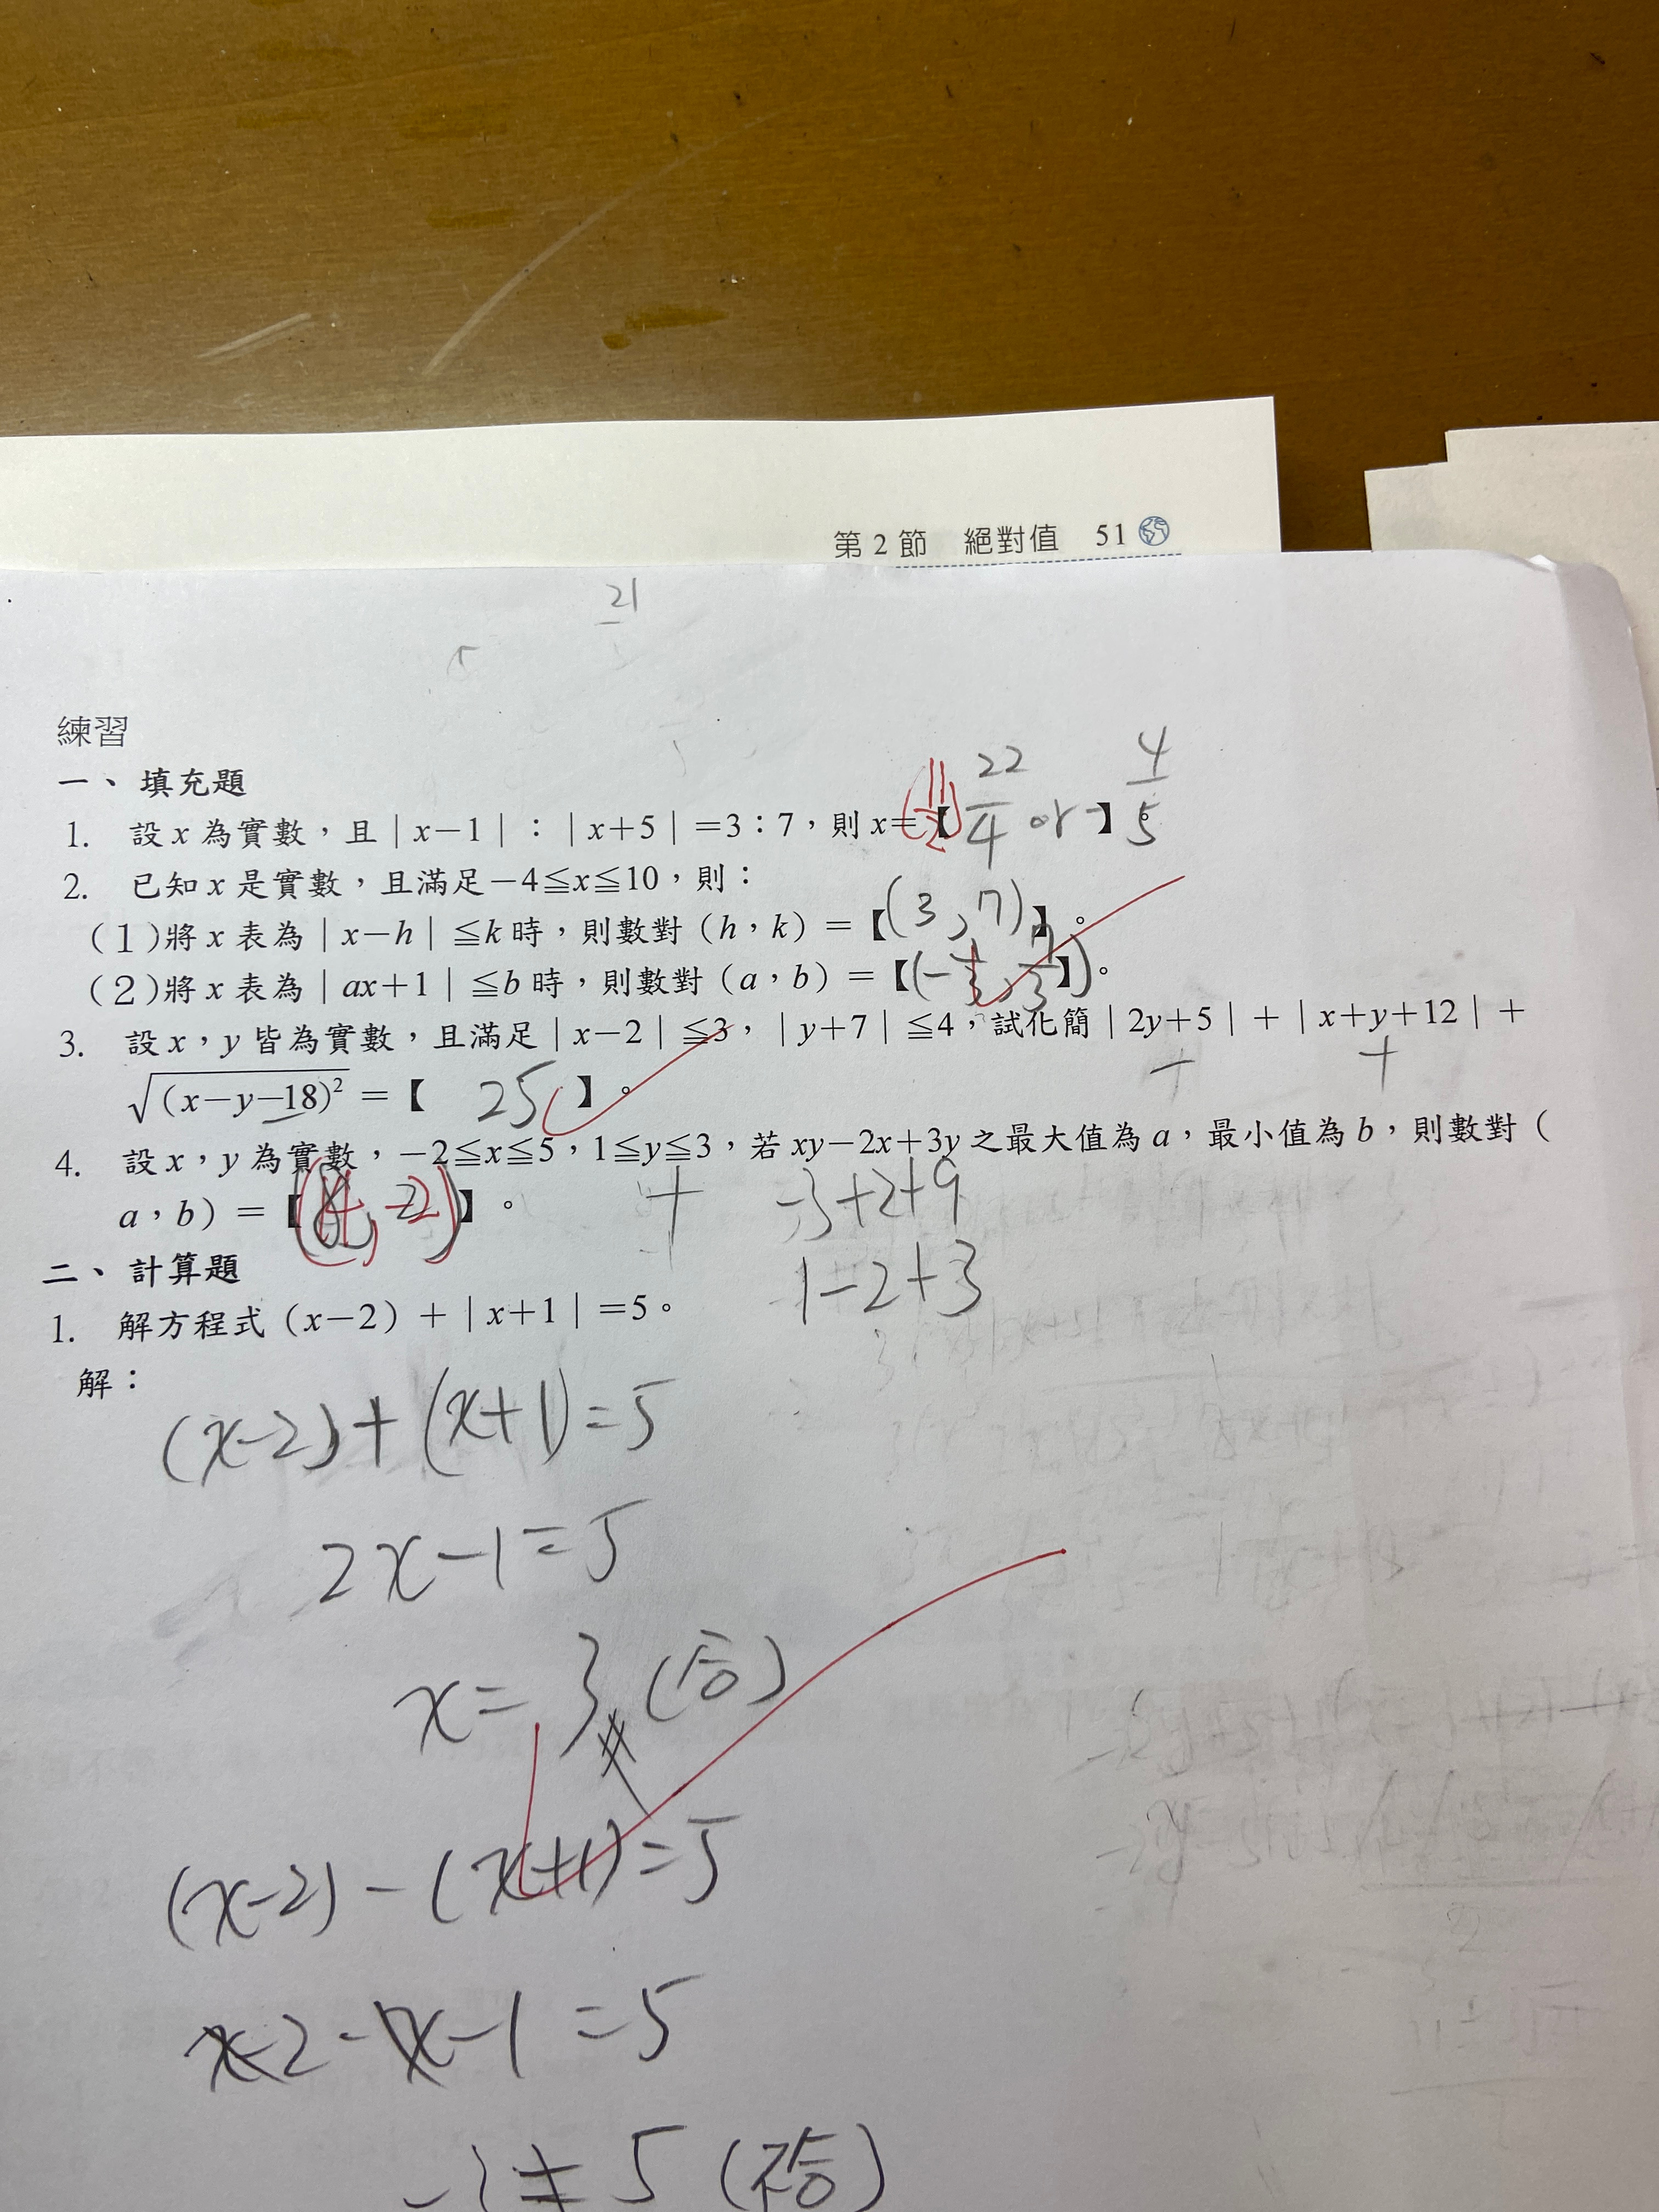 第2節 絕對值 51
21
練習
一、填充題
1. 設 x 為實數，且 | x－1 | : | x＋5 | ＝3：7，則 x＝【 22/4 or 】。 4/5
11/2
2. 已知 x 是實數，且滿足－4≦x≦10，則：
(1)將 x 表為 | x－h | ≦k 時，則數對 (h，k) ＝【(3, 7)】。
(2)將 x 表為 | ax＋1 | ≦b 時，則數對 (a，b) ＝【(-1/3, 7/3)】。
3. 設 x，y 皆為實數，且滿足 | x－2 | ≦3，| y＋7 | ≦4，試化簡 | 2y＋5 | ＋ | x＋y＋12 | ＋
√(x－y－18)² ＝【 25 】。
4. 設 x，y 為實數，－2≦x≦5，1≦y≦3，若 xy－2x＋3y 之最大值為 a，最小值為 b，則數對 (
a，b) ＝【 , -2)】。
-3+2+9
1-2+3
二、計算題
1. 解方程式 (x－2) ＋ | x＋1 | ＝5。
解：
(x-2)+(x+1)=5
2x-1=5
x=3 (合)
(x-2)-(x+1)=5
x-2-x-1=5
≠5 (不合)